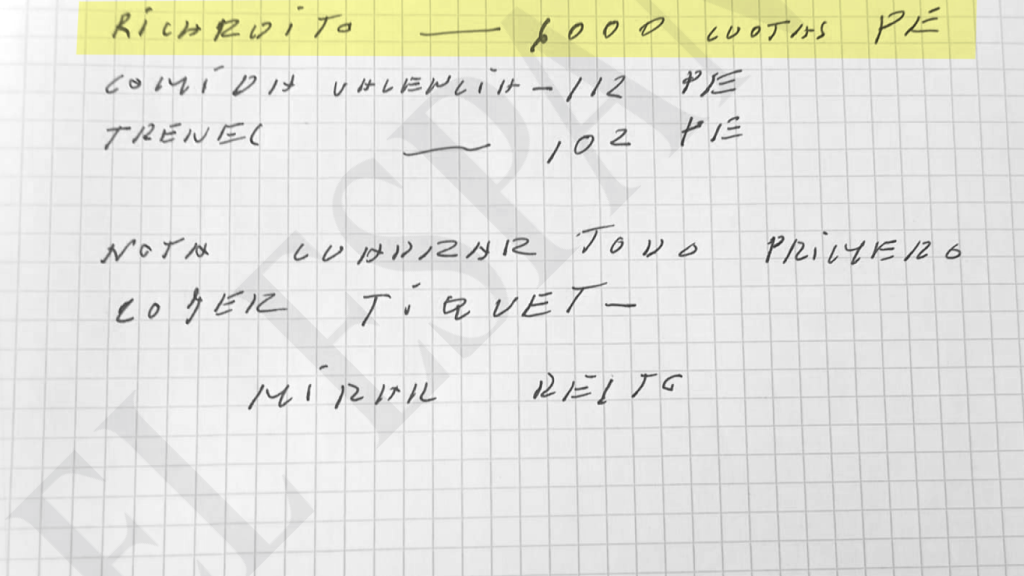 RICARDITO — 6000 CUOTAS PE
COMIDA VALENCIA - 112 PE
TRENES — 102 PE
NOTA CUADRAR TODO PRIMERO
COGER TIQUET —
MIRAR RESTO
EL ESPAÑ